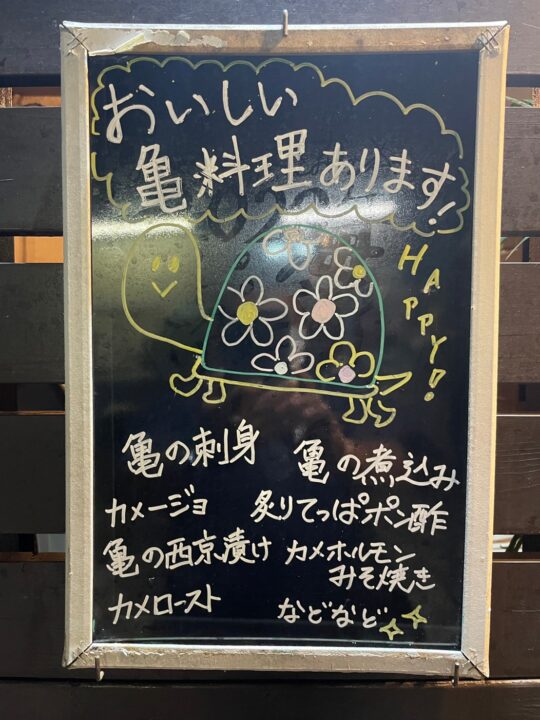 おいしい
亀料理あります!
HAPPY!
亀の刺身
亀の煮込み
カメージョ
炙りてっぱポン酢
亀の西京漬け
カメホルモン
みそ焼き
カメロースト
などなど